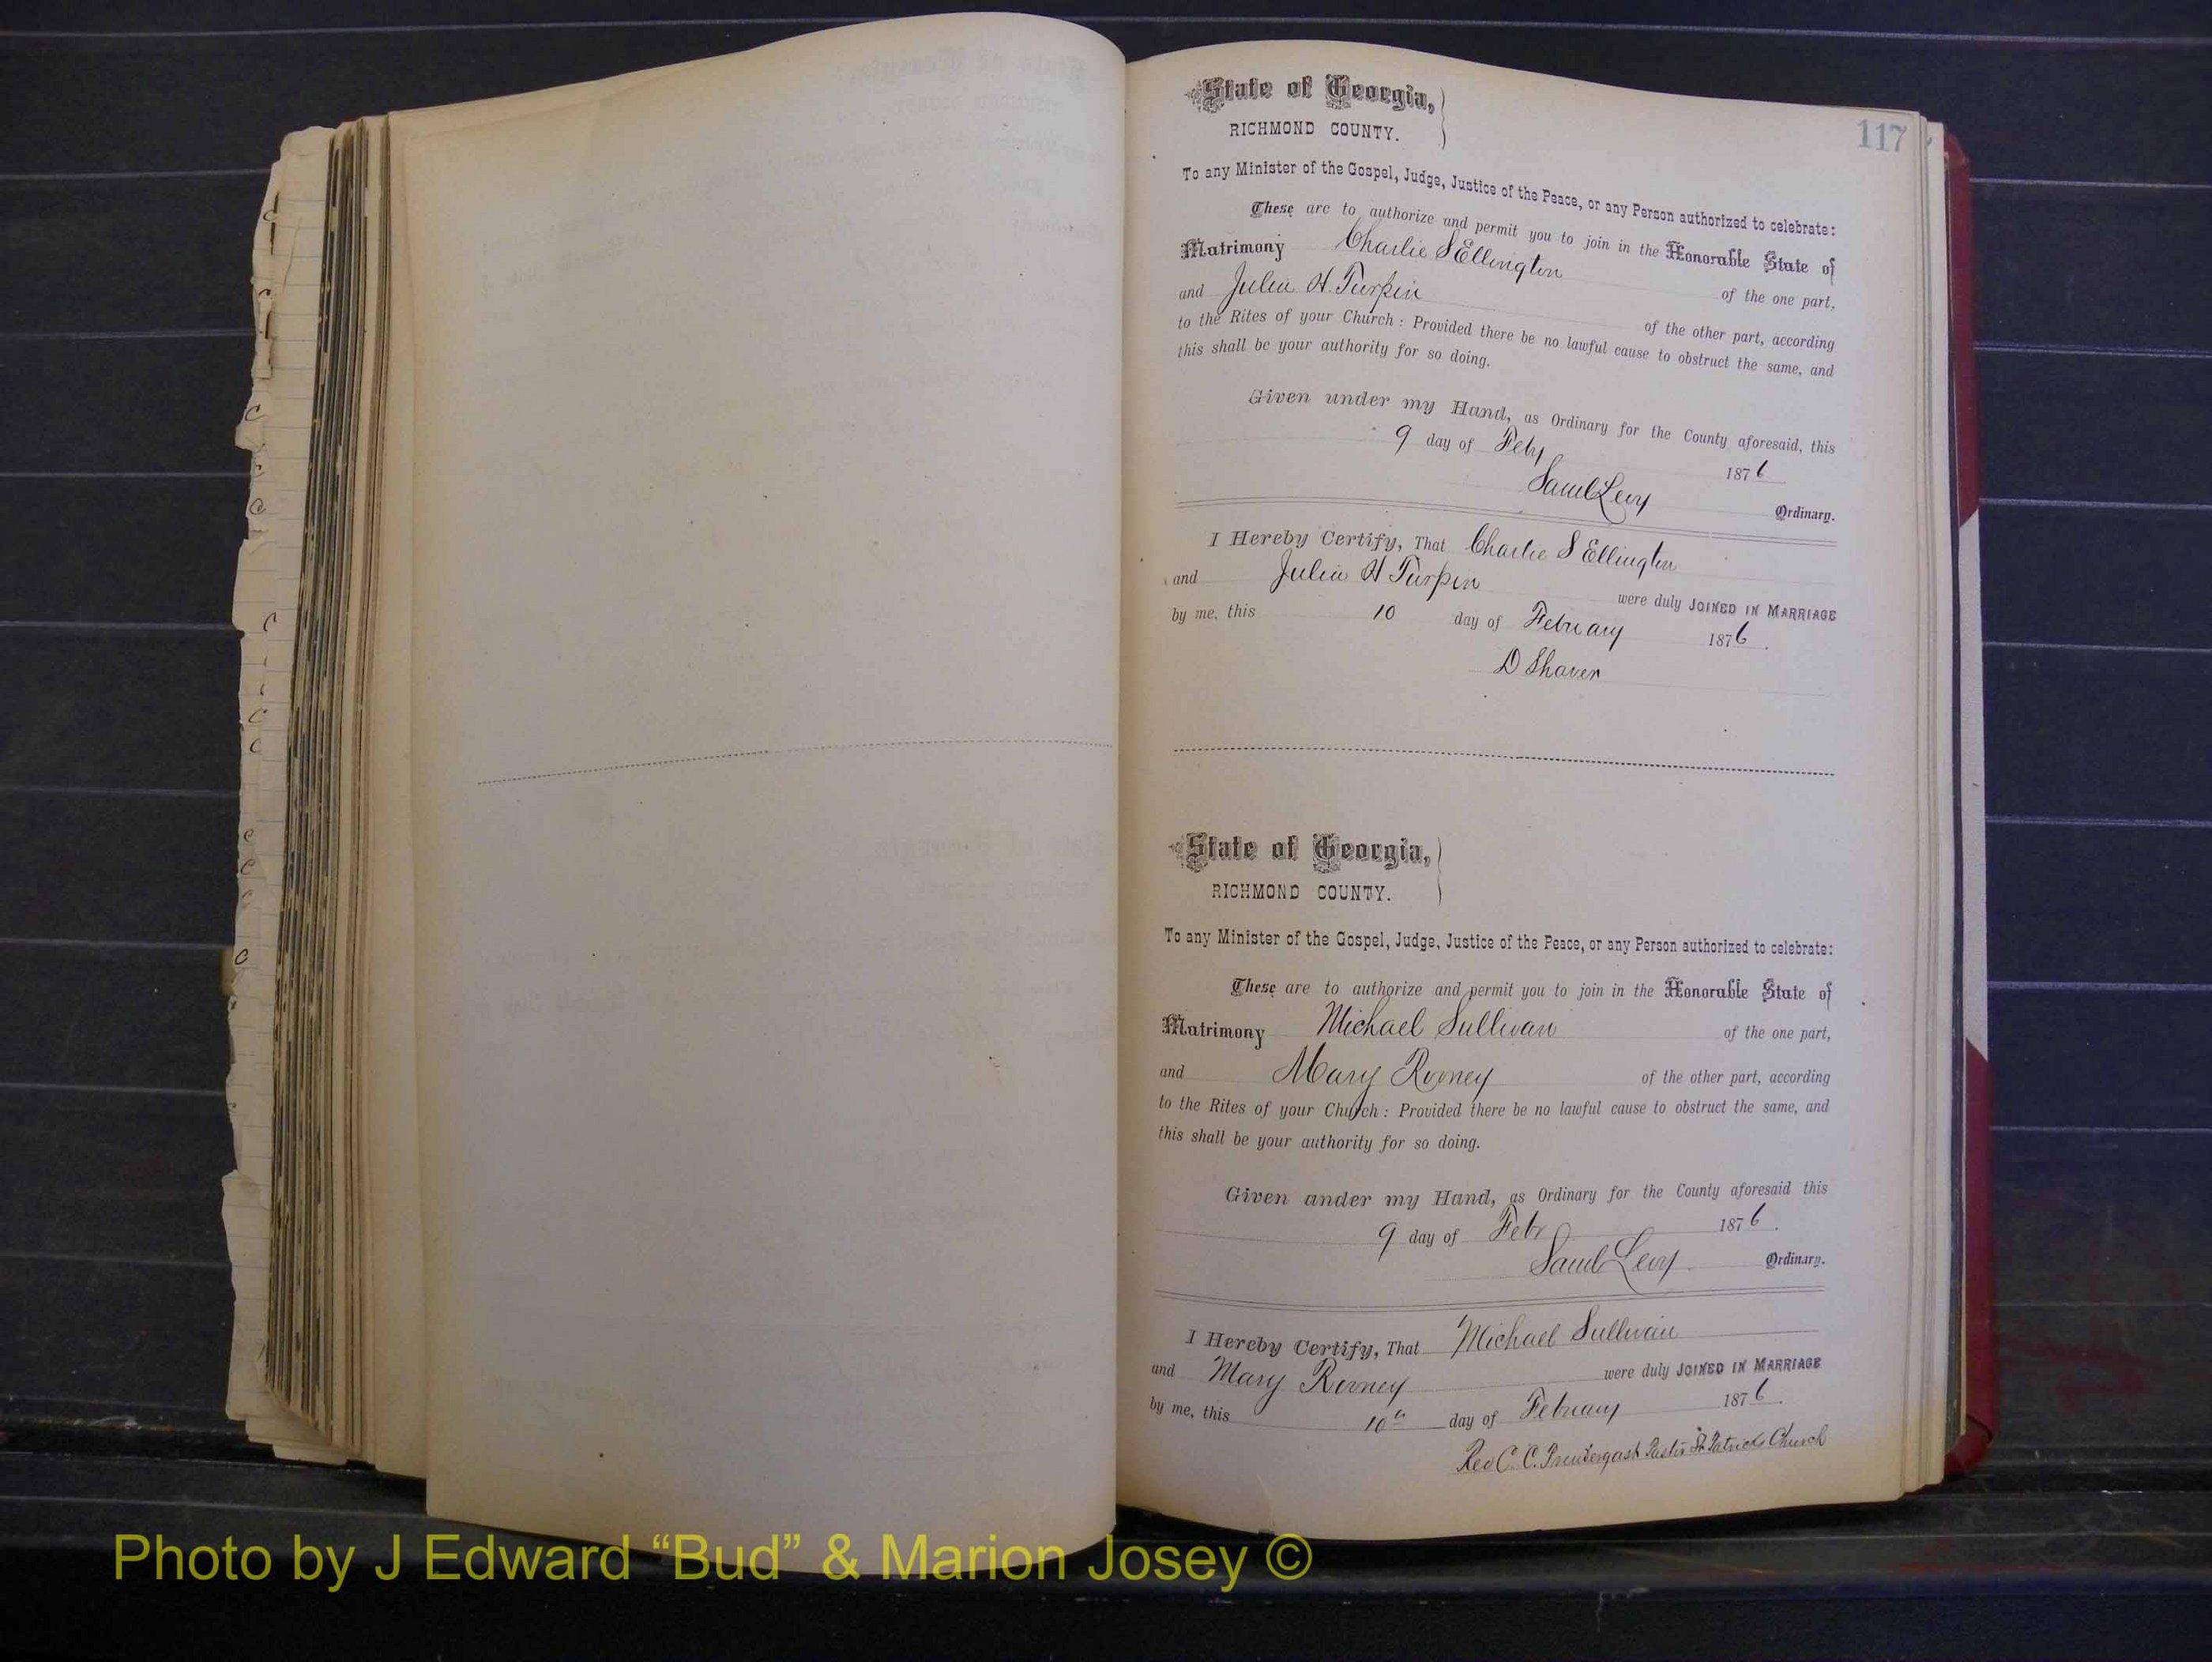 117
State of Georgia,
RICHMOND COUNTY.
To any Minister of the Gospel, Judge, Justice of the Peace, or any Person authorized to celebrate:
These are to authorize and permit you to join in the Honorable State of
Matrimony Charlie S Ellington of the one part,
and Julia H. Turpin of the other part, according
to the Rites of your Church: Provided there be no lawful cause to obstruct the same, and
this shall be your authority for so doing.
Given under my Hand, as Ordinary for the County aforesaid, this
9 day of Feby 1876
Saml Levy Ordinary.
I Hereby Certify, That Charlie S Ellington
and Julia H Turpin were duly JOINED IN MARRIAGE
by me, this 10 day of February 1876.
D Shaver
State of Georgia,
RICHMOND COUNTY.
To any Minister of the Gospel, Judge, Justice of the Peace, or any Person authorized to celebrate:
These are to authorize and permit you to join in the Honorable State of
Matrimony Michael Sullivan of the one part,
and Mary Rooney of the other part, according
to the Rites of your Church: Provided there be no lawful cause to obstruct the same, and
this shall be your authority for so doing.
Given under my Hand, as Ordinary for the County aforesaid this
9 day of Febr 1876.
Saml Levy Ordinary.
I Hereby Certify, That Michael Sullivan
and Mary Rooney were duly JOINED IN MARRIAGE
by me, this 10th day of February 1876.
Rev C. C. Prendergast Pastor St Patricks Church
Photo by J Edward “Bud” & Marion Josey ©